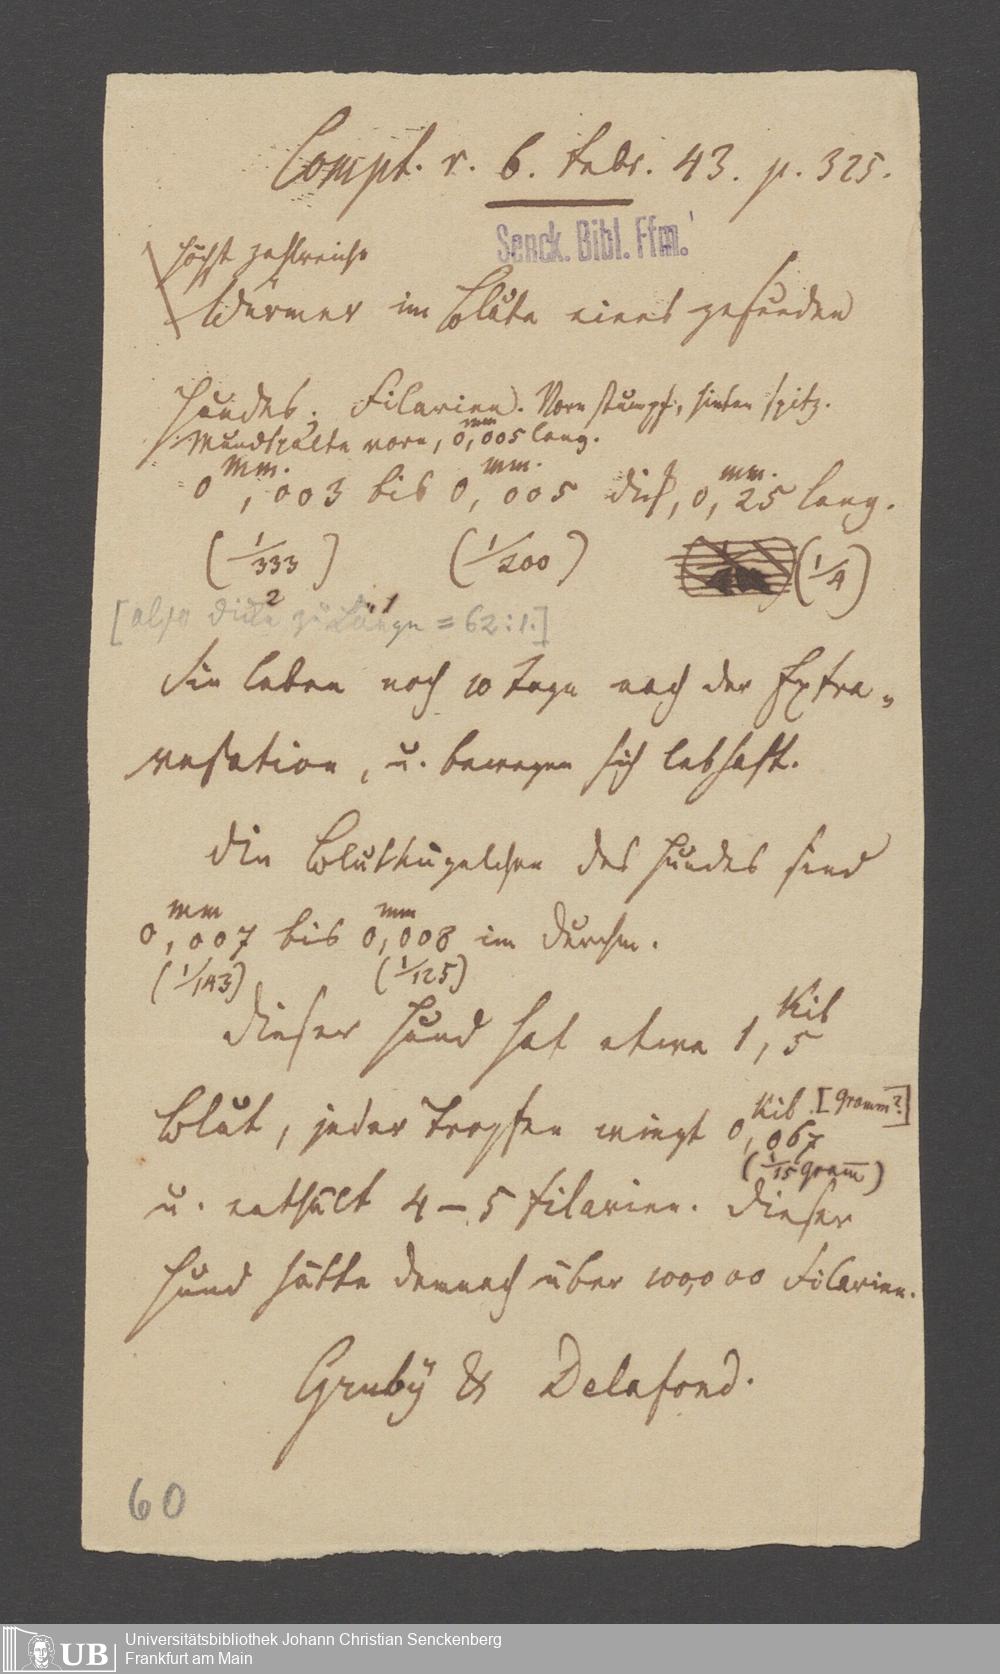 Compt. r. 6. Febr. 43. p. 325.
Senck. Bibl. Ffm.
höchst zahlreiche
Würmer im Blute eines gesunden
Hundes. Filarien. Vorn stumpf, hinten spitz.
Mundspalte vorn, 0,005 mm lang.
0,003 mm. bis 0,005 mm. dick, 0,25 mm. lang.
(1/333) (1/200) (1/4)
[also Dicke 2 zu Länge 1 = 62:1.]
Sie leben noch 10 Tage nach der Extra-
vasation, u. bewegen sich lebhaft.
Die Blutkügelchen des Hundes sind
0,007 mm bis 0,008 mm im Durchm.
(1/143) (1/125)
Dieser Hund hat etwa 1,5 Kil
Blut, jeder Tropfen wiegt 0,067 Kil. [Gramm?]
(1/15 gram̅)
u. enthält 4–5 Filarien. Dieser
Hund hätte demnach über 100,000 Filarien.
Gruby & Delafond.
60
UB
Universitätsbibliothek Johann Christian Senckenberg
Frankfurt am Main